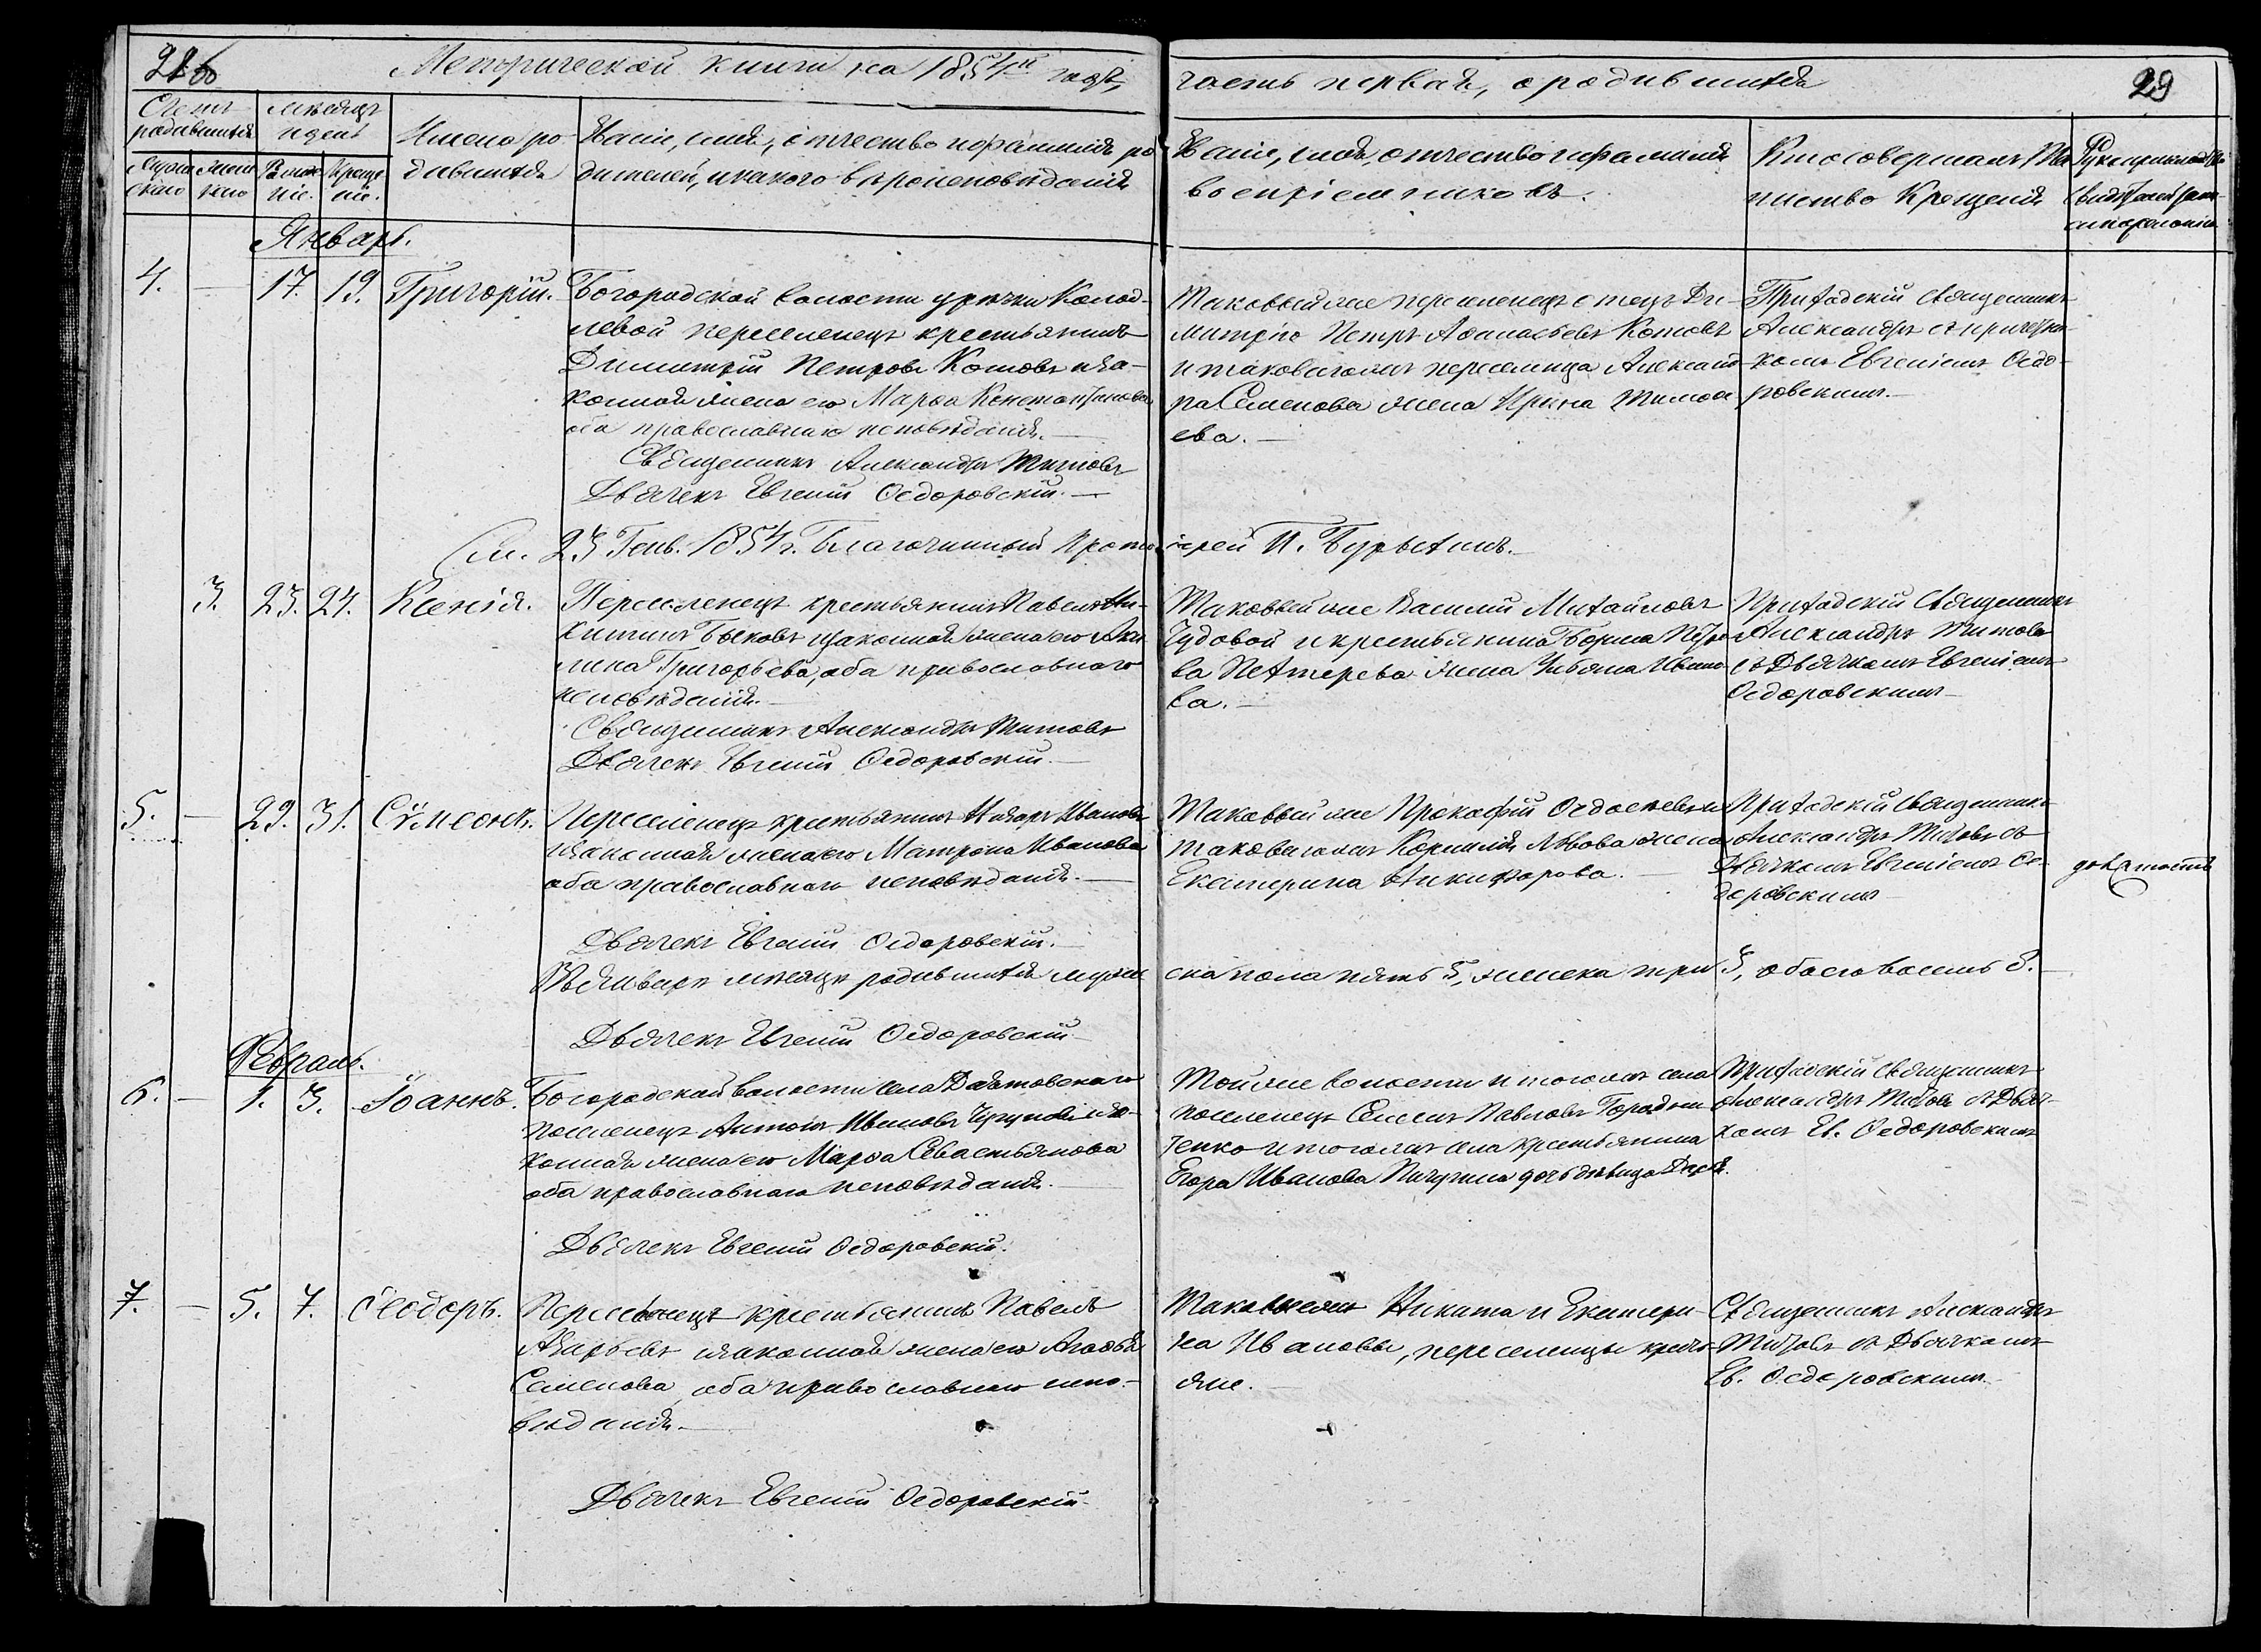 Метрической книги на 1854й годъ,
часть первая, о родившихся
29
Счетъ родившихся
мѣсяцъ и день
Имена родившихся
Званіе, имя, отчество и фамилія родителей, и какого вѣроисповѣданія
Званіе, имя, отчество и фамилія
воспріемниковъ.
Кто совершалъ Та
инство Крещенія
Январь.
4. — 17. 19. Григорій.
Богородской волости урочки Колод-
левой переселенецъ крестьянинъ
Димитрій Петровъ Котовъ и за-
конная жена его Марѳа Константинова
оба православнаго исповѣданія. —
Священникъ Александръ Титовъ
Дьячекъ Евгеній Ѳедоровскій. —
Таковый же переселенецъ отецъ Ди-
митрію Петръ Аѳанасьевъ Котовъ
и таковагожъ переселенца Александ-
ра Семенова жена Ирина Тимоѳе
ева. —
Приходскій Священникъ
Александръ съ причетни-
комъ Евгеніемъ Ѳедо-
ровскимъ. —
См. 23 Генв. 1854 г. Благочинный Прото
іерей П.
3. 23. 24. Ксенія.
Переселенецъ крестьянинъ Павелъ Ни-
китинъ Быковъ и законная жена его Аку
лина Григорьева, оба православнаго
исповѣданія. —
Священникъ Александръ Титовъ
Дьячекъ Евгеній Ѳедоровскій. —
Таковый же Василій Михайловъ
Чудовой и крестьянина Бориса Петро
ва жена Ульяна Ивано
ва. —
Приходскій Священникъ
Александръ Титовъ
съ Дьячкомъ Евгеніемъ
Ѳедоровскимъ —
5. — 29. 31. Сѵмеонъ.
Переселенецъ крестьянинъ Назаръ Ивановъ
и законная жена его Матрона Иванова
оба православнаго исповѣданія. —
Дьячекъ Евгеній Ѳедоровскій. —
Таковый же Прокофій Ѳедосѣевъ и
таковагожъ Корнилія Львова жена
Екатерина Никифорова. —
Приходскій Священникъ
Александръ Титовъ съ
Дьячкомъ Евгеніемъ Ѳе-
доровскимъ —
Въ Январѣ мѣсяцѣ родившихся муже
ска пола пять 5, женска три 3, обоего восемь 8. —
Дьячекъ Евгеній Ѳедоровскій —
Февраль.
6. — 1. 3. Іоаннъ.
Богородской волости села
поселенецъ Антонъ Ивановъ и за-
конная жена его Марѳа Севастьянова
оба православнаго исповѣданія. —
Дьячекъ Евгеній Ѳедоровскій.
Той же волости и тогожъ села
поселенецъ Семенъ Павловъ
и тогожъ села крестьянина
Егора Иванова Пичугина дочь дѣвица
Приходскій Священникъ
Александръ Титовъ съ Дьяч-
комъ Ев. Ѳедоровскимъ
7. — 5. 7. Ѳеодоръ.
Переселенецъ крестьянинъ Павелъ
и законная жена его Агаѳья
Семенова, оба православнаго испо-
вѣданія. —
Дьячекъ Евгеній Ѳедоровскій
Таковыежъ Никита и Екатери-
на Ивановы, переселенцы кресть-
яне. —
Священникъ Александръ
Титовъ съ Дьячкомъ
Ев. Ѳедоровскимъ. —